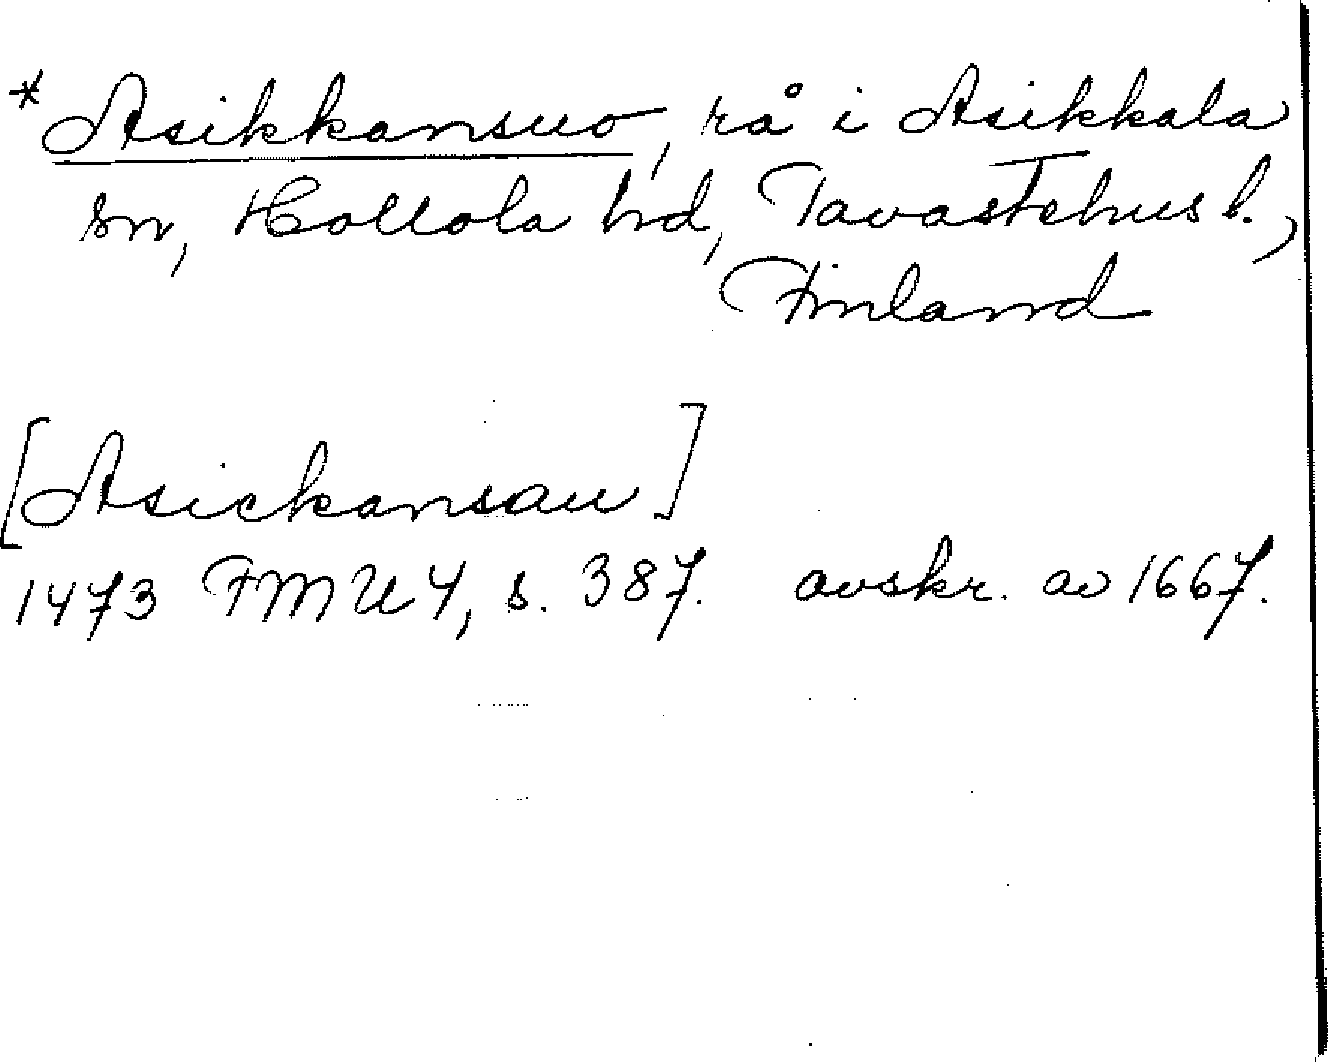 *Asikkansuo, rå i Asikkala
sn, Hollola hd, Tavastehus l.,
Finland
[Asickansau]
1473 FMU 4, s. 387. avskr. av 1667.